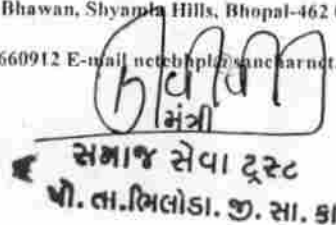 Bhawan, Shyamla Hills, Bhopal-462
660912 E-mail nctebhpl@sancharnet.
મંત્રી
સમાજ સેવા ટ્રસ્ટ
પો. તા.ભિલોડા. જી. સા. કાં